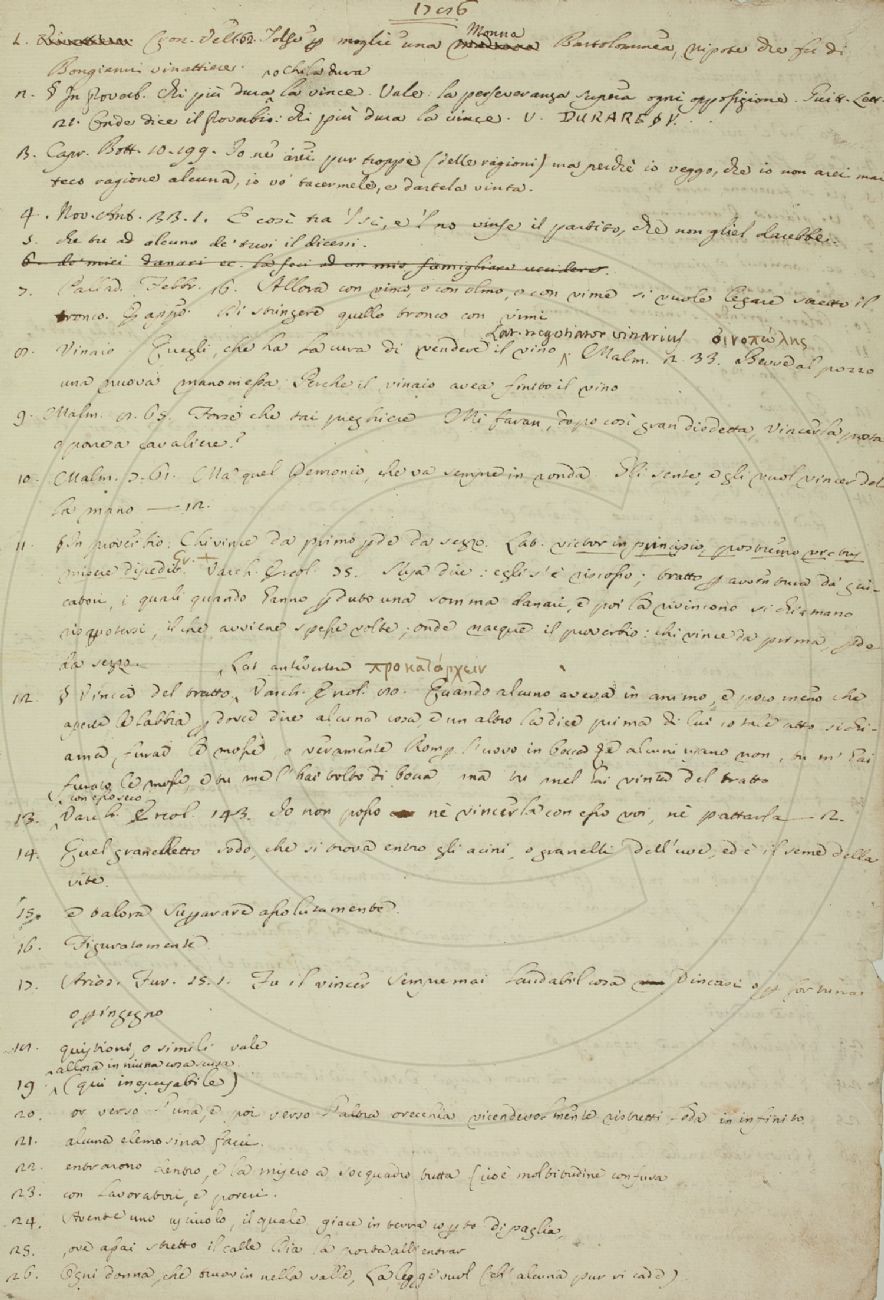 1726
1. Cron. Vell. 62. Tolse p moglie una Monna Bartolommea, nipote che fu di
Bongianni vinattiere.
2. § In proverb. Chi più dura la vince. Vale: la perseveranza supera ogni opposizione. Guitt. Lett.
21. Onde dice il proverbio: chi più dura la vince. V. DURARE § V.
3. Capr. Bott. 10. 199. Io ne arei pur troppe (delle ragioni) ma perchè io veggo, che io non arei mai
teco ragione alcuna, io vo' tacermele, e dartela vinta.
4. Nov. Ant. 33. 1. E così tra 'l sì, e 'l no vinse il partito, che non gliel darebbe.
5. che tu ad alcuno de' tuoi il dicessi.
6. de' miei danari ec. la feci ad un mio famigliare uccidere.
7. Pallad. Febbr. 16. Allora con vinco, o con olmo, o con vime si vuole legare stretto il
tronco. E appo. Di stringere quello tronco con vimi
Lat. negotiator vinarius οἰνοπώλης
8. Vinaio Quegli, che ha la cura di vendere il vino Malm. 2. 33. a Berve al pozzo
una nuova manomessa: Perche il vinaio avea finito il vino
9. Malm. 2. 65. Forse che tai preghiere Mi faran, dopo così gran disdetta, Vincer la posta
o porre a cavaliere?
10. Malm. 7. 61. Ma quel Demonio, che va sempre in ronda Gli sente, e gli vuol vincer del
la mano — 12.
11. § In proverbio: Chi vince da primo pde da sezzo. Lat. victor in principio, postremo victus
Gr. + Varch. Ercol. 75. S'usa dire: egli s'è riscosso; tratto p avventura da' giu-
catori, i quali quando hanno pduto una somma danari, e poi la rivincono si chiamano
riscuotersi, il che avviene spesse volte; onde nacque il proverbio: chi vince da prima, pde
da sezzo.
Lat. antevertere προκατάρχειν
12. § Vincer del tratto, Varch. Ercol. 70. Quando alcuno aveva in animo, e poco meno che
aperte le labbra p dover dire alcuna cosa e un altro la dice prima di lui cotale atto si chi-
ama furar le mosse o veramente Romp l'uovo in bocca e alcuni usano non, tu m'hai
furato le mosse, e tu me l'hai tolto di bocca ma tu mel hai vinta del tratto
con esso seco
13. Varch. Ercol. 143. Io non posso nè vincerla con esso voi, nè pattarla — 2.
14. Quel granelletto sodo, che si trova entro gli acini, o granelli dell'uve, ed è il seme della
vite.
15. e talora Supparare assolutamente.
16. Figuratamente
17. Arios. Fur. 15. 1. Fu il vincer sempre mai laudabil cosa Vincasi o p fortuna
o p ingegno
18. quistioni, o simili vale
allora in niuna cosa scusa
19. (qui inescusabile)
20. or verso l'una, e poi verso l'altra orecchia vicendevolmente ristretti loda in infinito
21. alcuna elemosina facci.
22. entrarono dentro, e la misero a soqquadro tutta (cioè moltitudine confusa
23. con lavoratori, e poveri.
24. Avente uno usciuolo, il quale giace in terra copto di paglia,
25. ove assai stretto il calle Dia la porta all'entrar
26. Ogni donna, che trovin nella valle, La legge vuol (ch' alcuna pur vi cade)